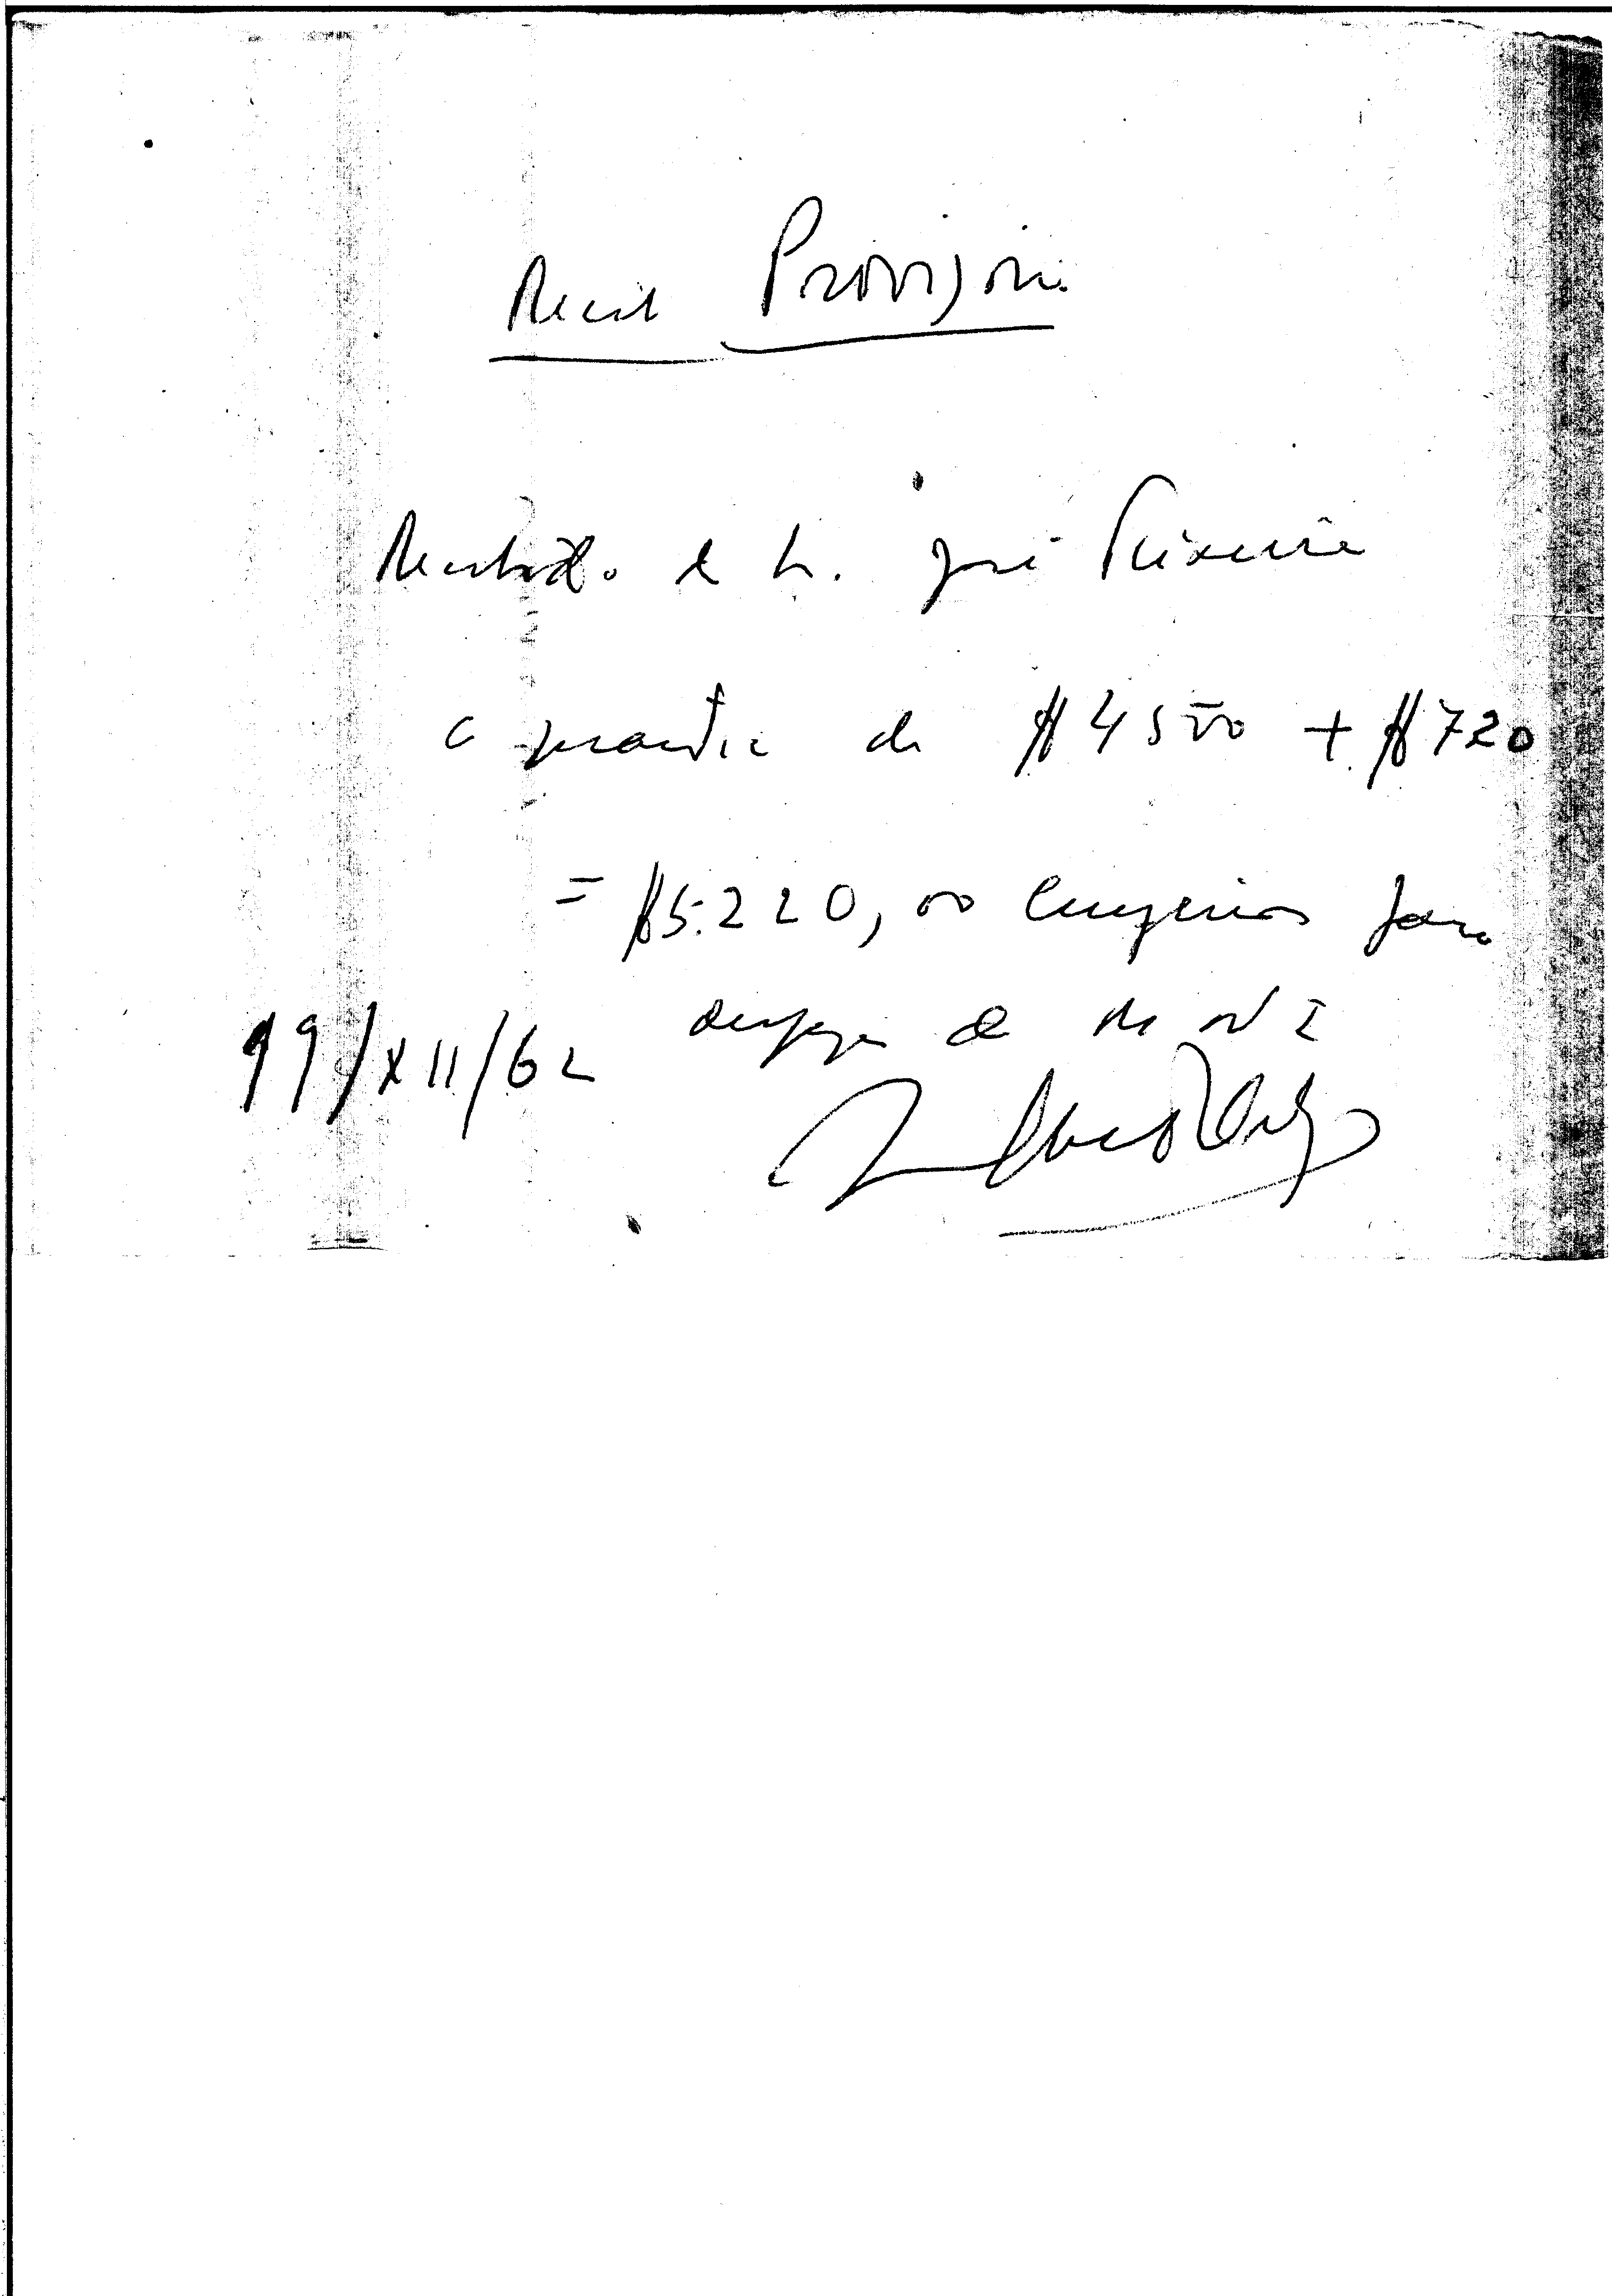 Recibo Provisório
Recebido de Sr. José Teixeira
a quantia de $4500 + $720
= $5.220,00 Cruzeiros para
despesa de
11/XII/62